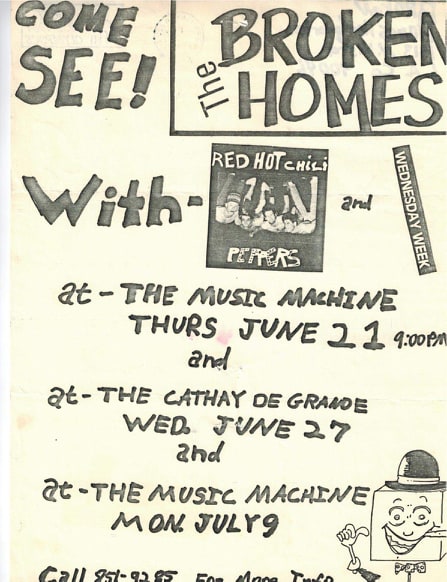 COME SEE!
The BROKEN HOMES
With-
RED HOT CHiLi PEPPERS
and
WEDNESDAY WEEK
at - THE MUSIC MACHINE
THURS JUNE 21 9:00PM
and
at - THE CATHAY DE GRANDE
WED. JUNE 27
and
at - THE MUSIC MACHINE
MON. JULY 9
Call 851-9285 For More Info